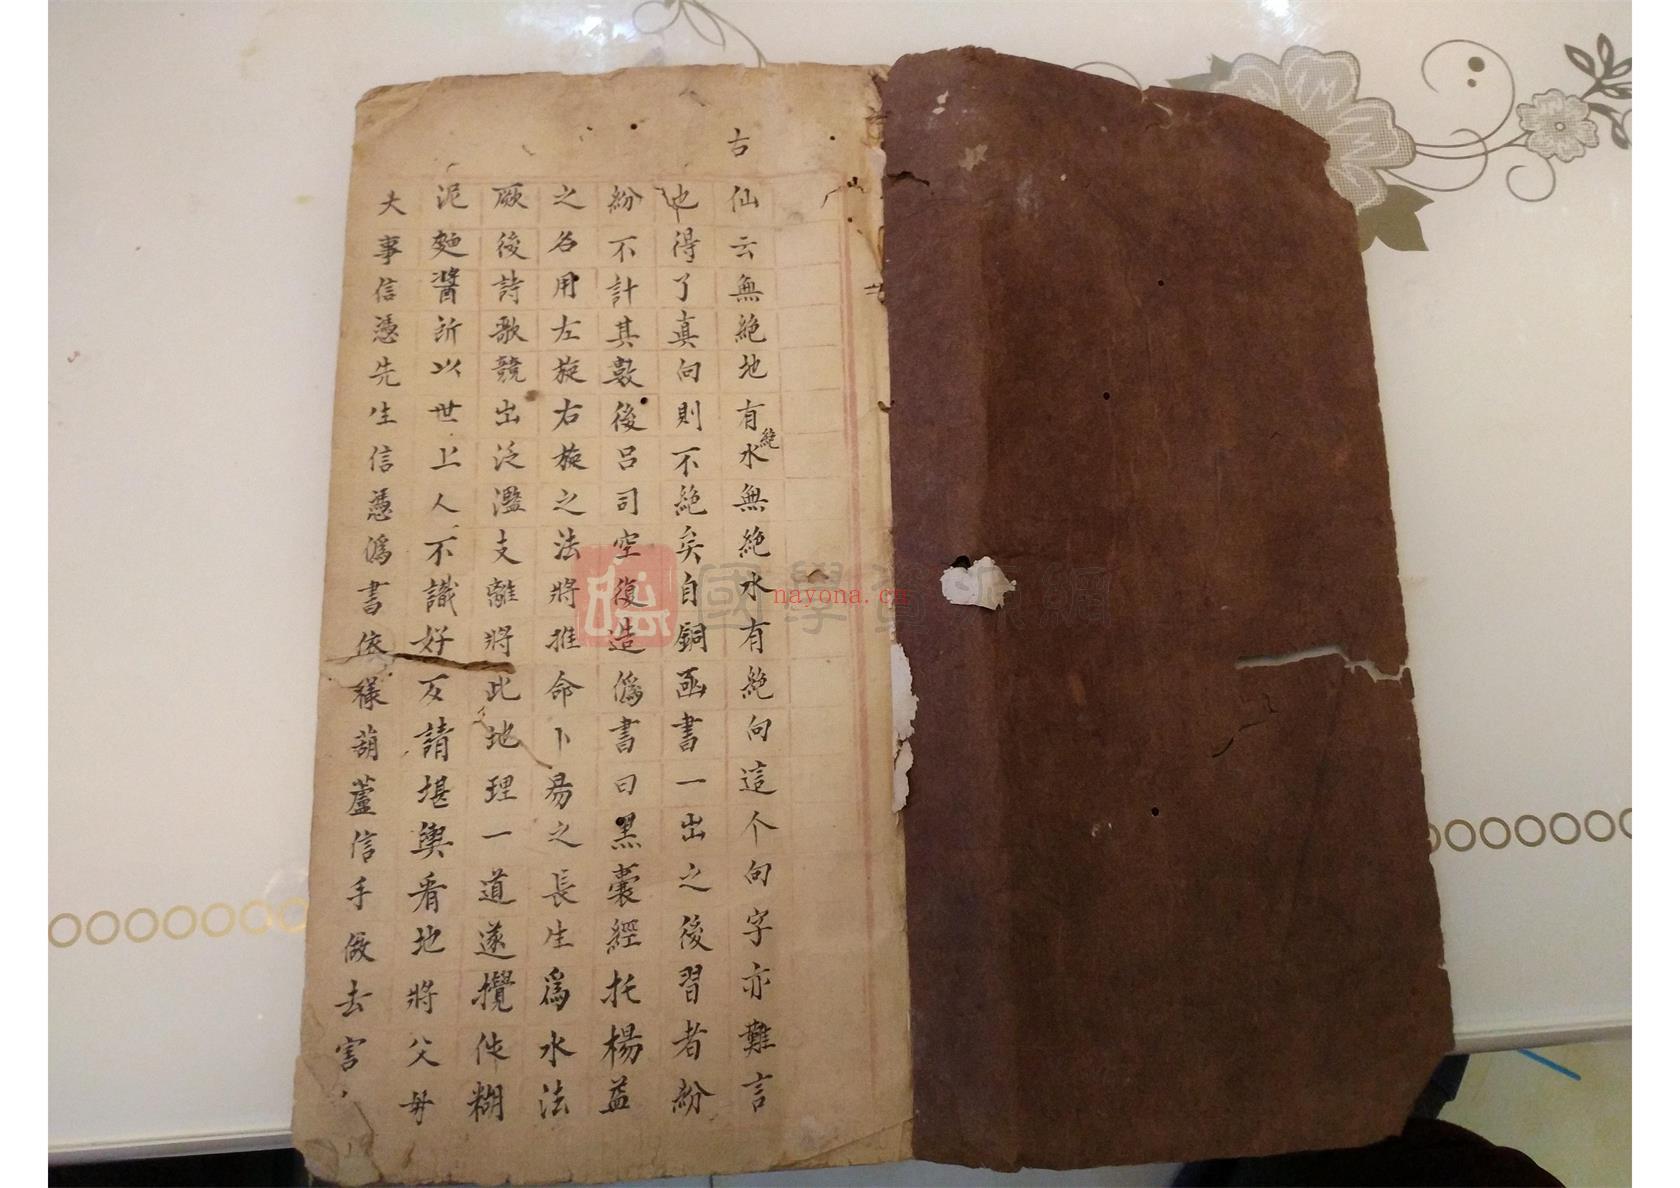 古仙云無絶地有絶水無絶水有絶向這个向字亦難言
也得了真向則不絶矣自銅函書一出之後習者紛
紛不計其數後呂司空復造僞書曰黑囊經托楊益
之名用左旋右旋之法將推命卜易之長生爲水法
厥後詩歌競出泛濫支離將此地理一道遂攪作糊
泥麵醬所以世上人不識好反請堪輿看地將父母
大事信憑先生信憑僞書依樣葫蘆信手做去害
國學資源網
nayona.cn